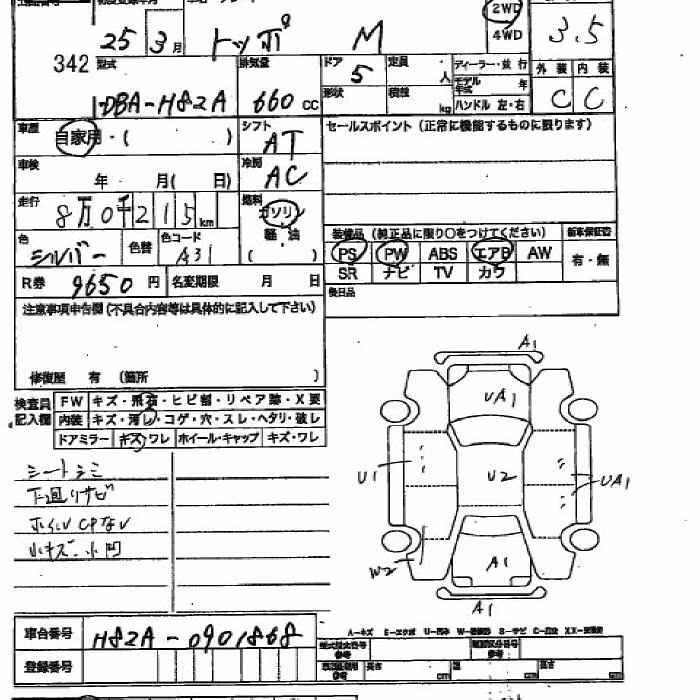 2WD
25 3月 トッポ M 4WD 3.5
342 型式 排気量 ドア 定員 ディーラー・並行 外装 内装
5 人 モデル年式 年
DBA-H82A 660 CC 形状 積載 kg ハンドル 左・右 C C
車歴 自家用・( ) シフト AT セールスポイント (正常に機能するものに限ります)
車検 年 月( 日) 冷房 AC
走行 8万0千215km 燃料 ガソリン
軽油
装備品 (純正品に限り○をつけてください) 新車保証書
色 シルバー 色替 色コード A31 ( ) PS PW ABS エアB AW 有・無
SR ナビ TV カワ
R券 9650円 名変期限 月 日 後日品
注意事項申告欄(不具合内容等は具体的に記入して下さい)
修復歴 有 (箇所 )
検査員記入欄 FW キズ・飛石・ヒビ割・リペア跡・X要
内装 キズ・汚れ・コゲ・穴・スレ・ヘタリ・破レ
ドアミラー キズワレ ホイール・キャップ キズ・ワレ
シートシミ
下廻りサビ
ホイルCPなし
小キズ・小凹
A1
UA1
U1 U2 UA1
W2 A1
A1
A-キズ E-エクボ U-凹み S-サビ
車台番号 H82A-0901868
登録番号 長さ cm 幅 cm 高さ cm